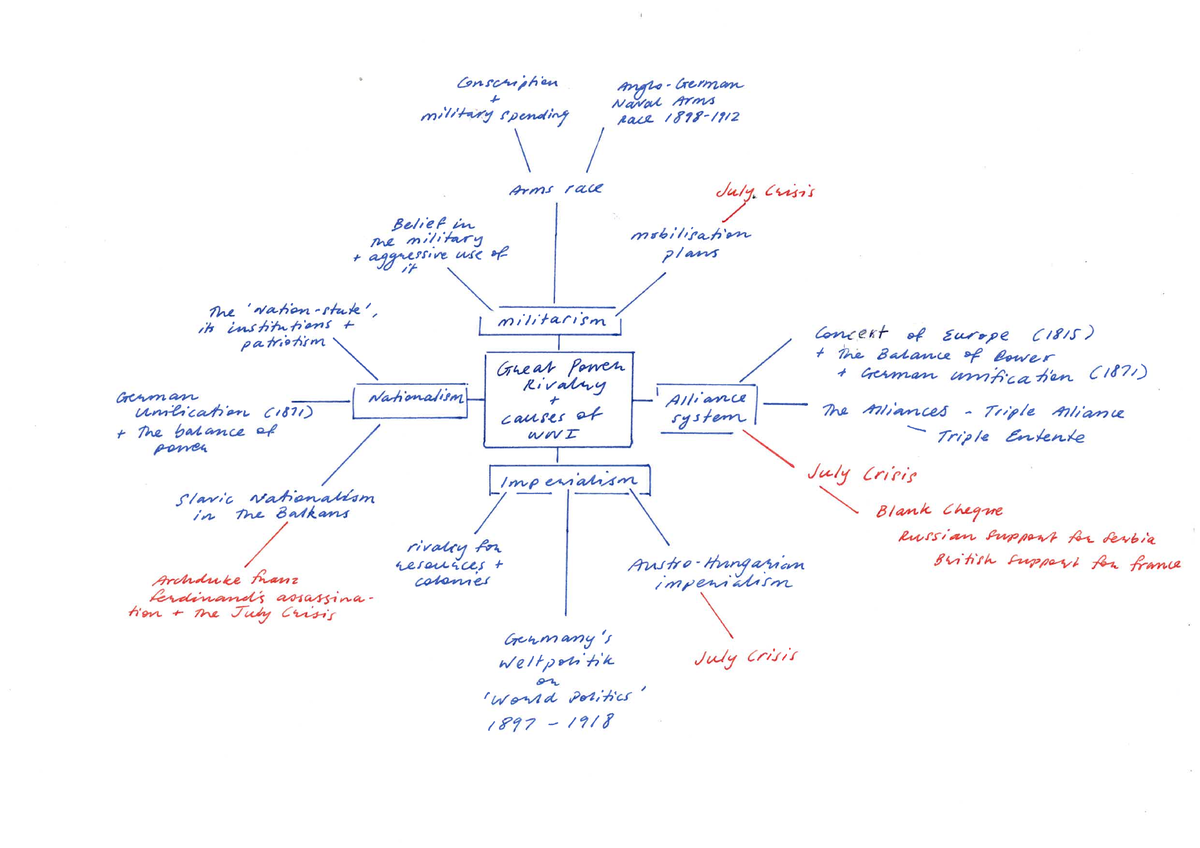 Conscription
+
military spending
Anglo-German
Naval Arms
race 1898-1912
Arms race
July Crisis
Belief in
the military
+ aggressive use of
it
mobilisation
plans
militarism
The 'Nation-state',
its institutions +
patriotism
Great Power
Rivalry
+
causes of
WWI
Concert of Europe (1815)
+ The Balance of Power
+ German unification (1871)
German
Unification (1871)
+ The balance of
power
Nationalism
Alliance
system
The Alliances - Triple Alliance
Triple Entente
July Crisis
Blank Cheque
Russian support for Serbia
British support for France
Slavic Nationalism
in The Balkans
Imperialism
Archduke Franz
Ferdinand's assassina-
tion + the July Crisis
rivalry for
resources +
colonies
Austro-Hungarian
imperialism
July Crisis
Germany's
Weltpolitik
or
'World Politics'
1897 - 1918